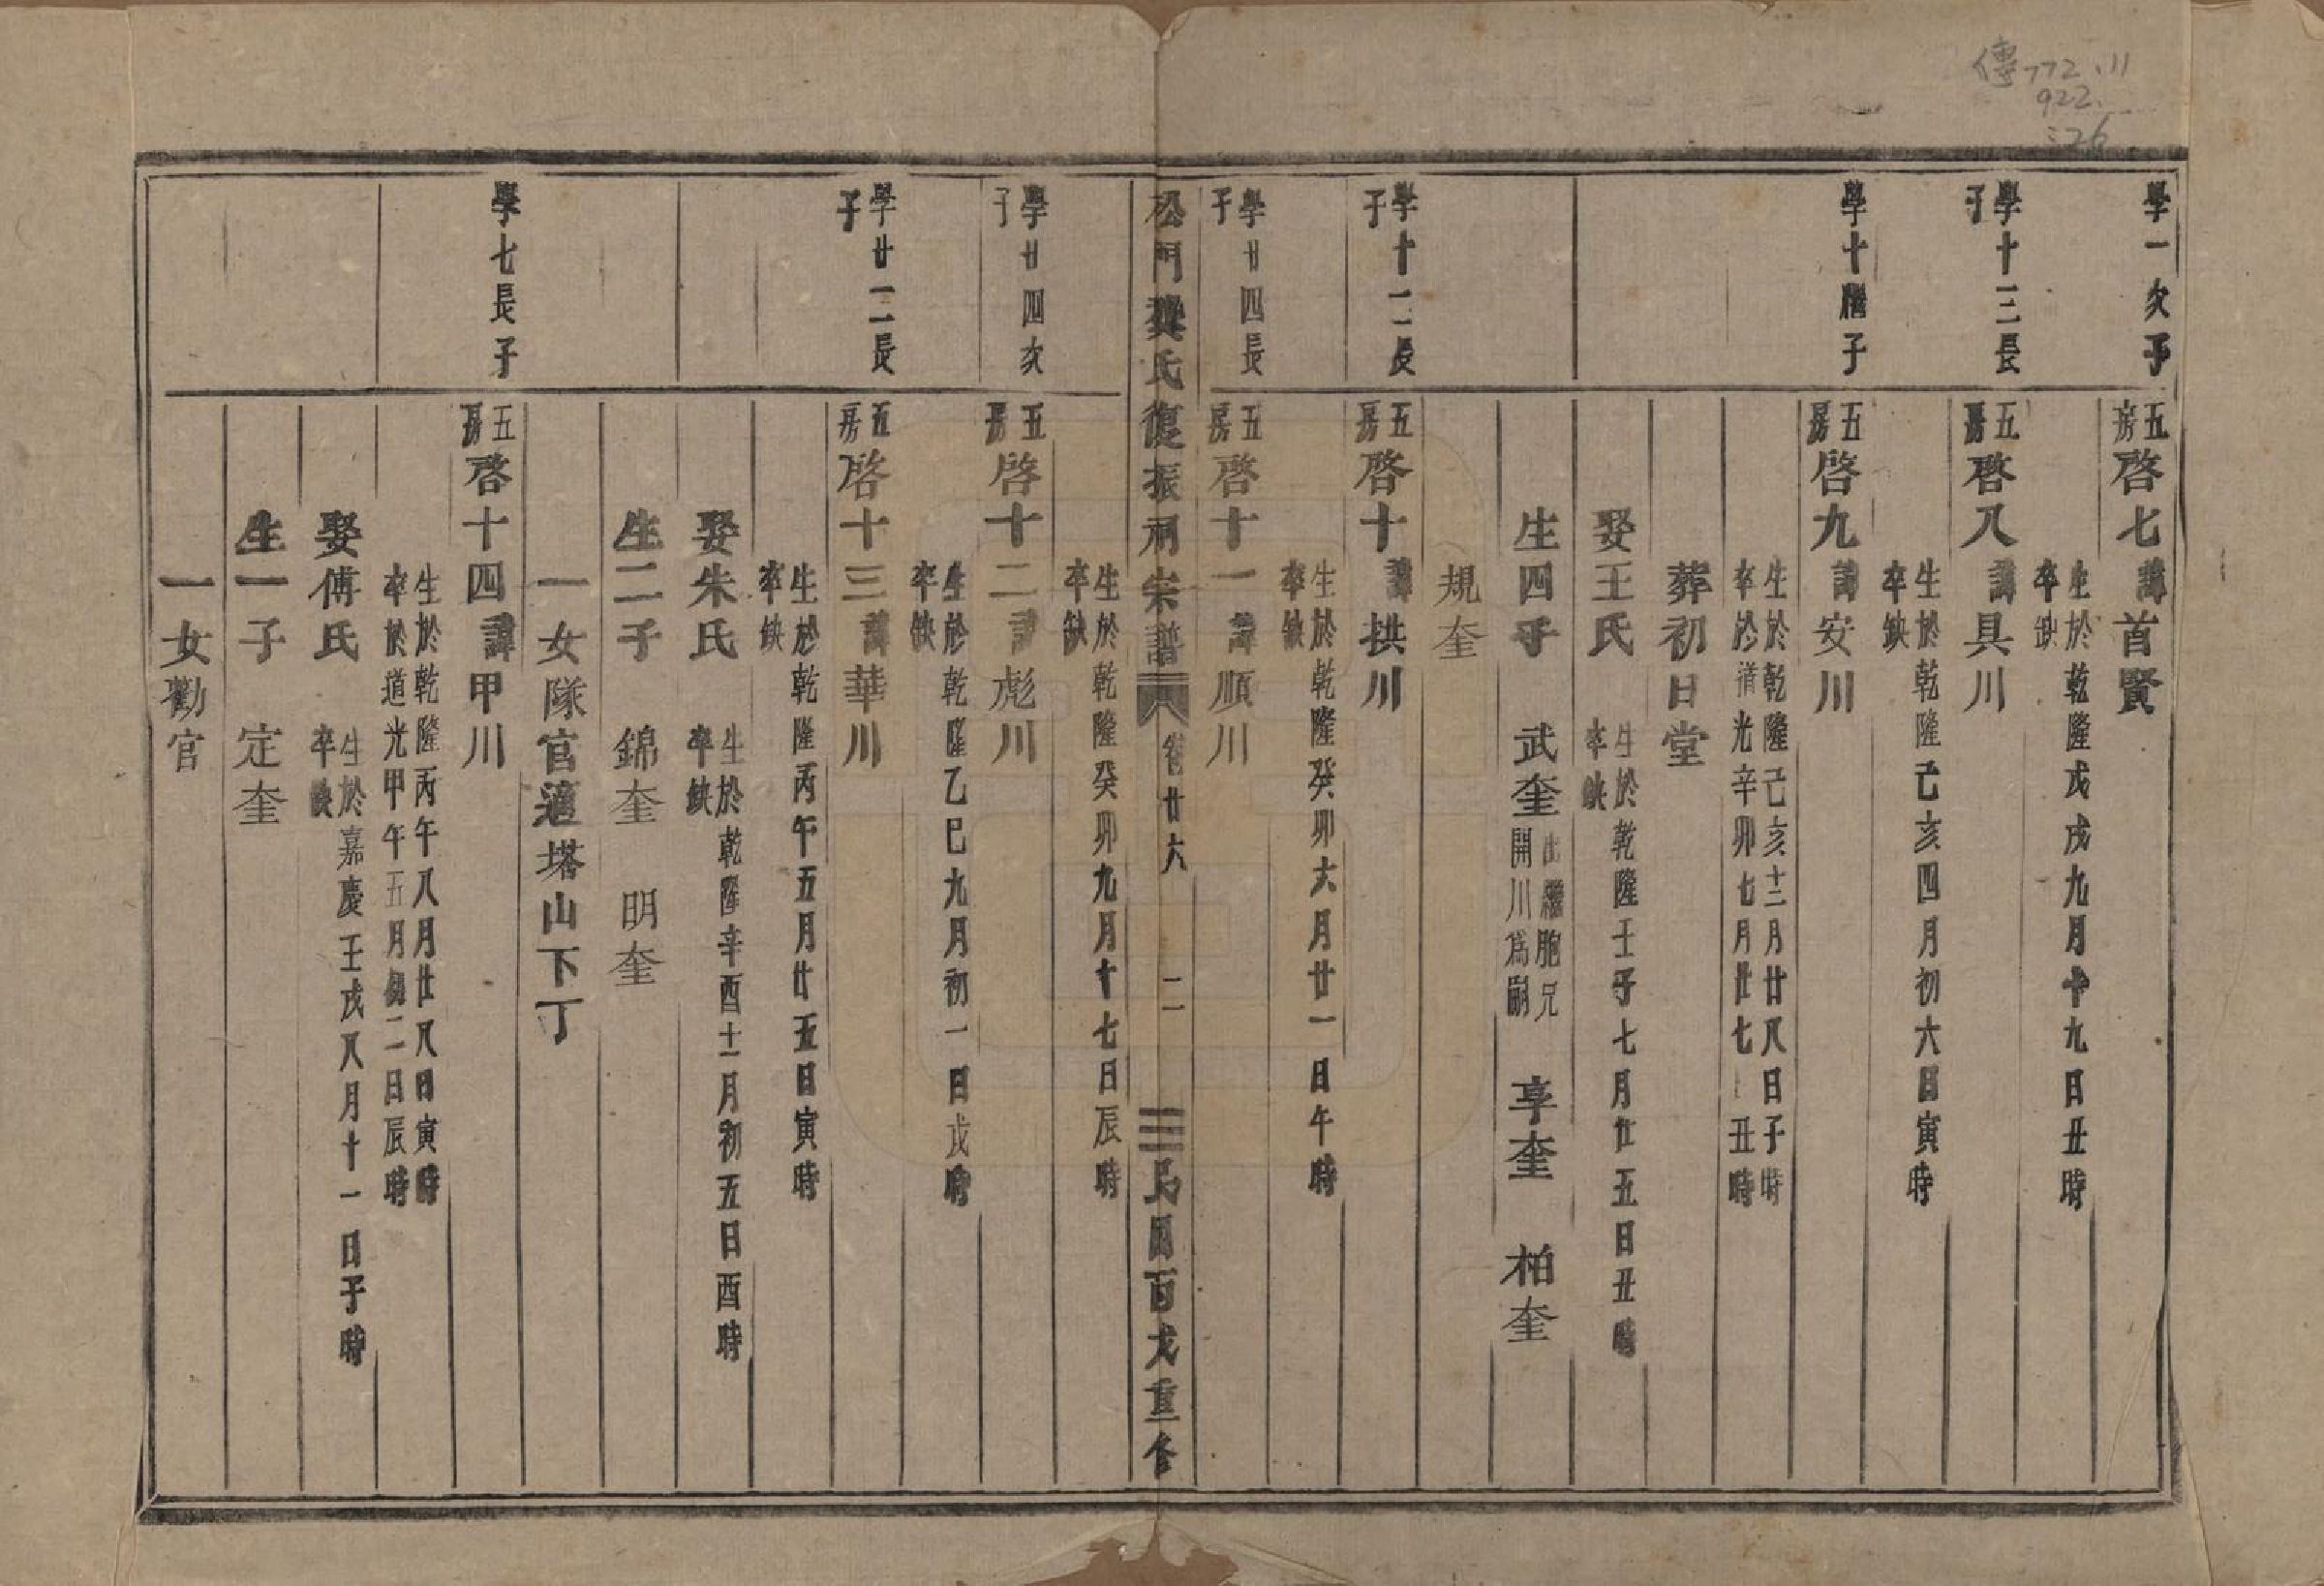 傳772.11
922.
:26
學一次子
五房啓七諱首賢
生於乾隆戊戌九月十九日丑時
卒缺
學十三長子
五房啓八諱具川
生於乾隆己亥四月初六日寅時
卒缺
學十繼子
五房啓九諱安川
生於乾隆己亥十二月廿八日子時
卒於道光辛卯七月廿七 丑時
葬初日堂
娶王氏
生於乾隆壬子七月廿五日丑時
卒缺
生四子 武奎 出繼胞兄開川爲嗣 享奎 柏奎
規奎
學十二長子
五房啓十諱拱川
學廿四長子
五房啓十一諱順川
生於乾隆癸卯六月廿一日午時
卒缺
松門龔氏復振祠宗譜 卷廿六 二 民國百戈重修
生於乾隆癸卯九月十七日辰時
卒缺
學廿四次子
五房啓十二諱彪川
生於乾隆乙巳九月初一日戌時
卒缺
學廿一二長子
五房啓十三諱華川
生於乾隆丙午五月廿五日寅時
卒缺
娶朱氏
生於乾隆辛酉十一月初五日酉時
卒缺
生二子 錦奎 明奎
一女隊官適塔山下丁
學七長子
五房啓十四諱甲川
生於乾隆丙午八月廿八日寅時
卒於道光甲午五月初二日辰時
娶傅氏
生於嘉慶壬戌八月十一日子時
卒缺
生一子 定奎
一女勸官